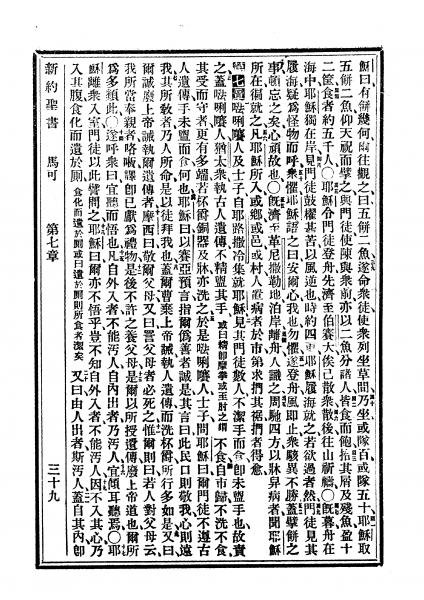 穌曰有餅幾何爾往觀之曰五餅二魚遂命衆徒使衆列坐草間乃坐或隊百或隊五十耶穌取
五餅二魚仰天祝而擘之與門徒使陳與衆前亦以二魚分諸人皆食而飽拾其屑及殘魚盈十
二筐食者約五千人〇旣耶穌令門徒登舟先濟至伯賽大俟己散衆散後往山祈禱〇旣暮舟在
海中耶穌獨在岸見門徒鼓櫂甚苦以風逆也時約四更耶穌履海就之若欲過者然門徒見其
履海疑爲怪物而呼衆懼耶穌語之曰安爾心我也勿懼遂登舟風卽止衆駭異不勝蓋擘餅之
事頓忘之矣心頑故也〇旣濟至革尼撒勒地泊岸離舟人識之周馳四方以牀舁病者聞耶穌
所在徧就之凡耶穌所入或鄉或邑或村人置病者於市第求捫其裾捫者得愈
第七章唎人及士子自耶路撒冷集就耶穌見其門徒數人不潔手而食卽未盥手也故責
之蓋唎人猶太衆執古人遺傳不精盥其手或曰精卽摩拳或至肘之謂不食自市歸不洗不食
其受而守者更有多端若杯爵銅器及牀亦洗之於是唎人士子問耶穌曰爾門徒不遵古
人遺傳手未盥而食何也耶穌曰以賽亞預言指爾僞善者誠是其言曰此民口則敬我心則遠
我其所敎者乃人所命是以徒拜我也蓋爾曹棄上帝誡執人遺傳而洗杯爵所行多如是又曰
爾誠廢上帝誡執爾遺傳者摩西曰敬爾父母又曰詈父母者必死之惟爾則曰若人對父母云
我所當奉親者咯卽已獻爲禮物是後不許之養父母是爾以所授遺傳廢上帝道也爾所
爲多類此〇遂呼衆曰宜聽而悟也凡自外入者不能汚人自內出者乃汚人宜傾耳聽焉〇耶
穌離衆入室門徒以此譬問之耶穌曰爾亦不悟乎豈不知自外入者不能汚人因不入其心乃
入其腹食化而遺於厠食化而遺於厠或曰遺於厠則所食者潔矣又曰由人出者斯汚人蓋自其內卽
新約聖書 馬可 第七章 三十九